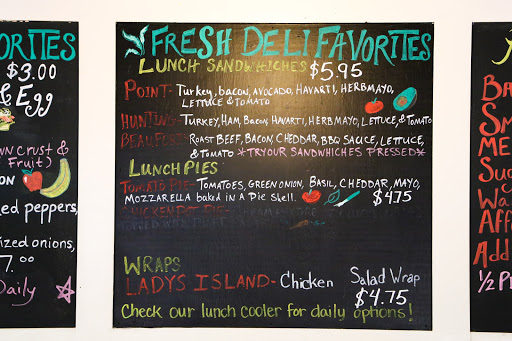 ORITES
$3.00
& Egg
wn crust &
Fruit)
on
ed peppers,
ized onions,
7.00
Daily
FRESH DELI FAVORITES
LUNCH SANDWHICHES $5.95
POINT- Turkey, bacon, AVOCADO, HAVARTI, HERB MAYO,
LETTUCE & TOMATO
HUNTING- TURKEY, HAM, BACON, HAVARTI, HERB MAYO, LETTUCE, & TOMATO
BEAUFORT- ROAST BEEF, BACON, CHEDDAR, BBQ SAUCE, LETTUCE,
& TOMATO *TRY OUR SANDWHICHES PRESSED*
LUNCH PIES
TOMATO PIE- TOMATOES, GREEN ONION, BASIL, CHEDDAR, MAYO,
MOZZARELLA baked in A Pie Shell. $4.75
CHICKEN POT PIE-
WRAPS
LADYS ISLAND- Chicken Salad Wrap
$4.75
Check our lunch cooler for daily options!
BA
SM
ME
Sug
Wa
Aff
Add
1/2 P